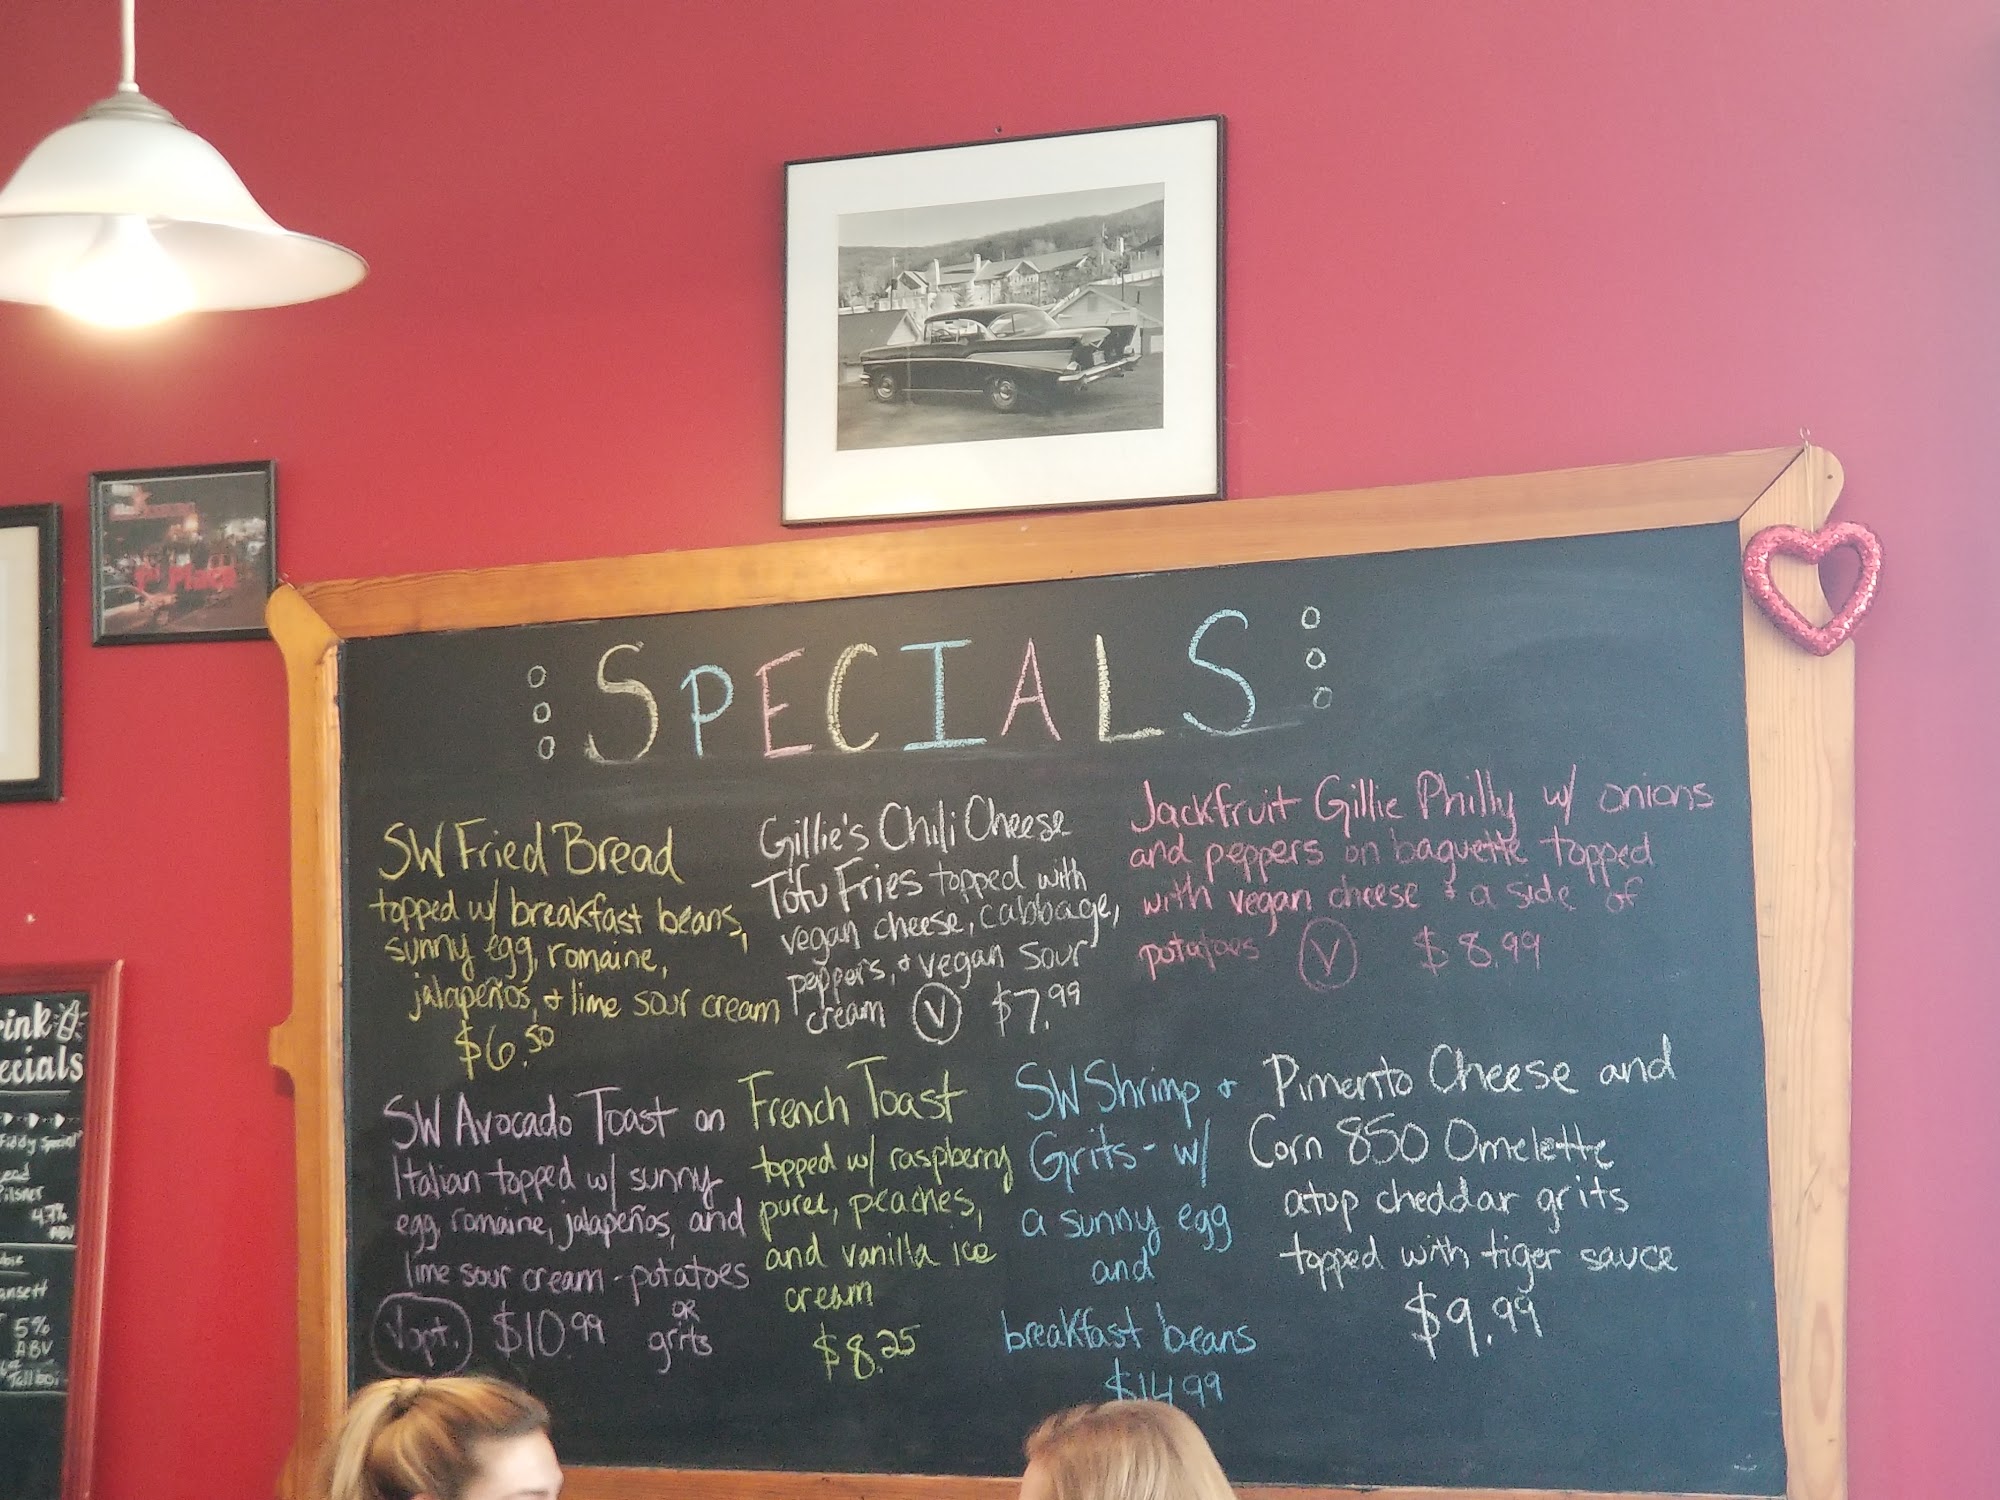 SPECIALS
SW Fried Bread
topped w/ breakfast beans,
sunny egg, romaine,
jalapeños, + lime sour cream
$6.50
Gillie's Chili Cheese
Tofu Fries topped with
vegan cheese, cabbage,
peppers, + vegan sour
cream V $7.99
Jackfruit Gillie Philly w/ onions
and peppers on baguette topped
with vegan cheese + a side of
potatoes V $8.99
SW Avocado Toast on
Italian topped w/ sunny
egg, romaine, jalapeños, and
lime sour cream - potatoes
OR
V opt. $10.99 grits
French Toast
topped w/ raspberry
puree, peaches,
and vanilla ice
cream
$8.25
SW Shrimp +
Grits - w/
a sunny egg
and
breakfast beans
$14.99
Pimento Cheese and
Corn 850 Omelette
atop cheddar grits
topped with tiger sauce
$9.99
1st Place
ink
ecials
Fiddy Special"
ead
Pilsner
4.7%
ABV
ansett
5%
ABV
Tallboi